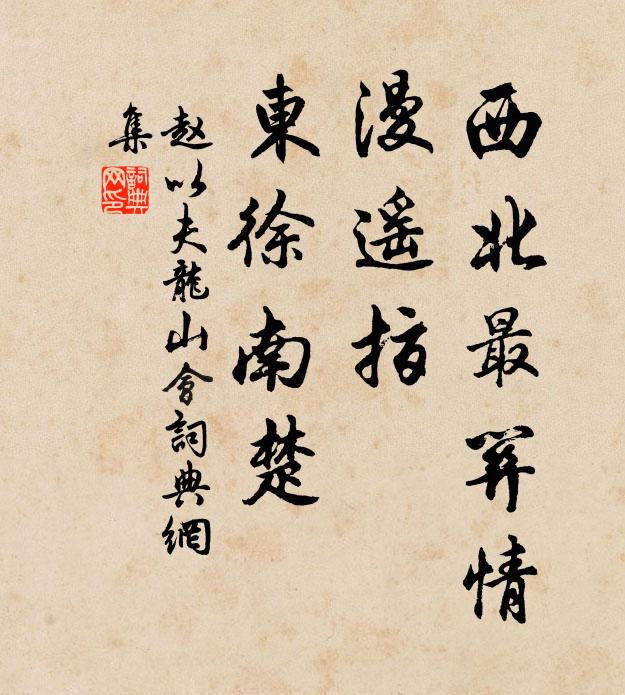 西北最關情
漫遙指
東徐南楚
赵以夫龍山會詞典網
集
詞典
网印